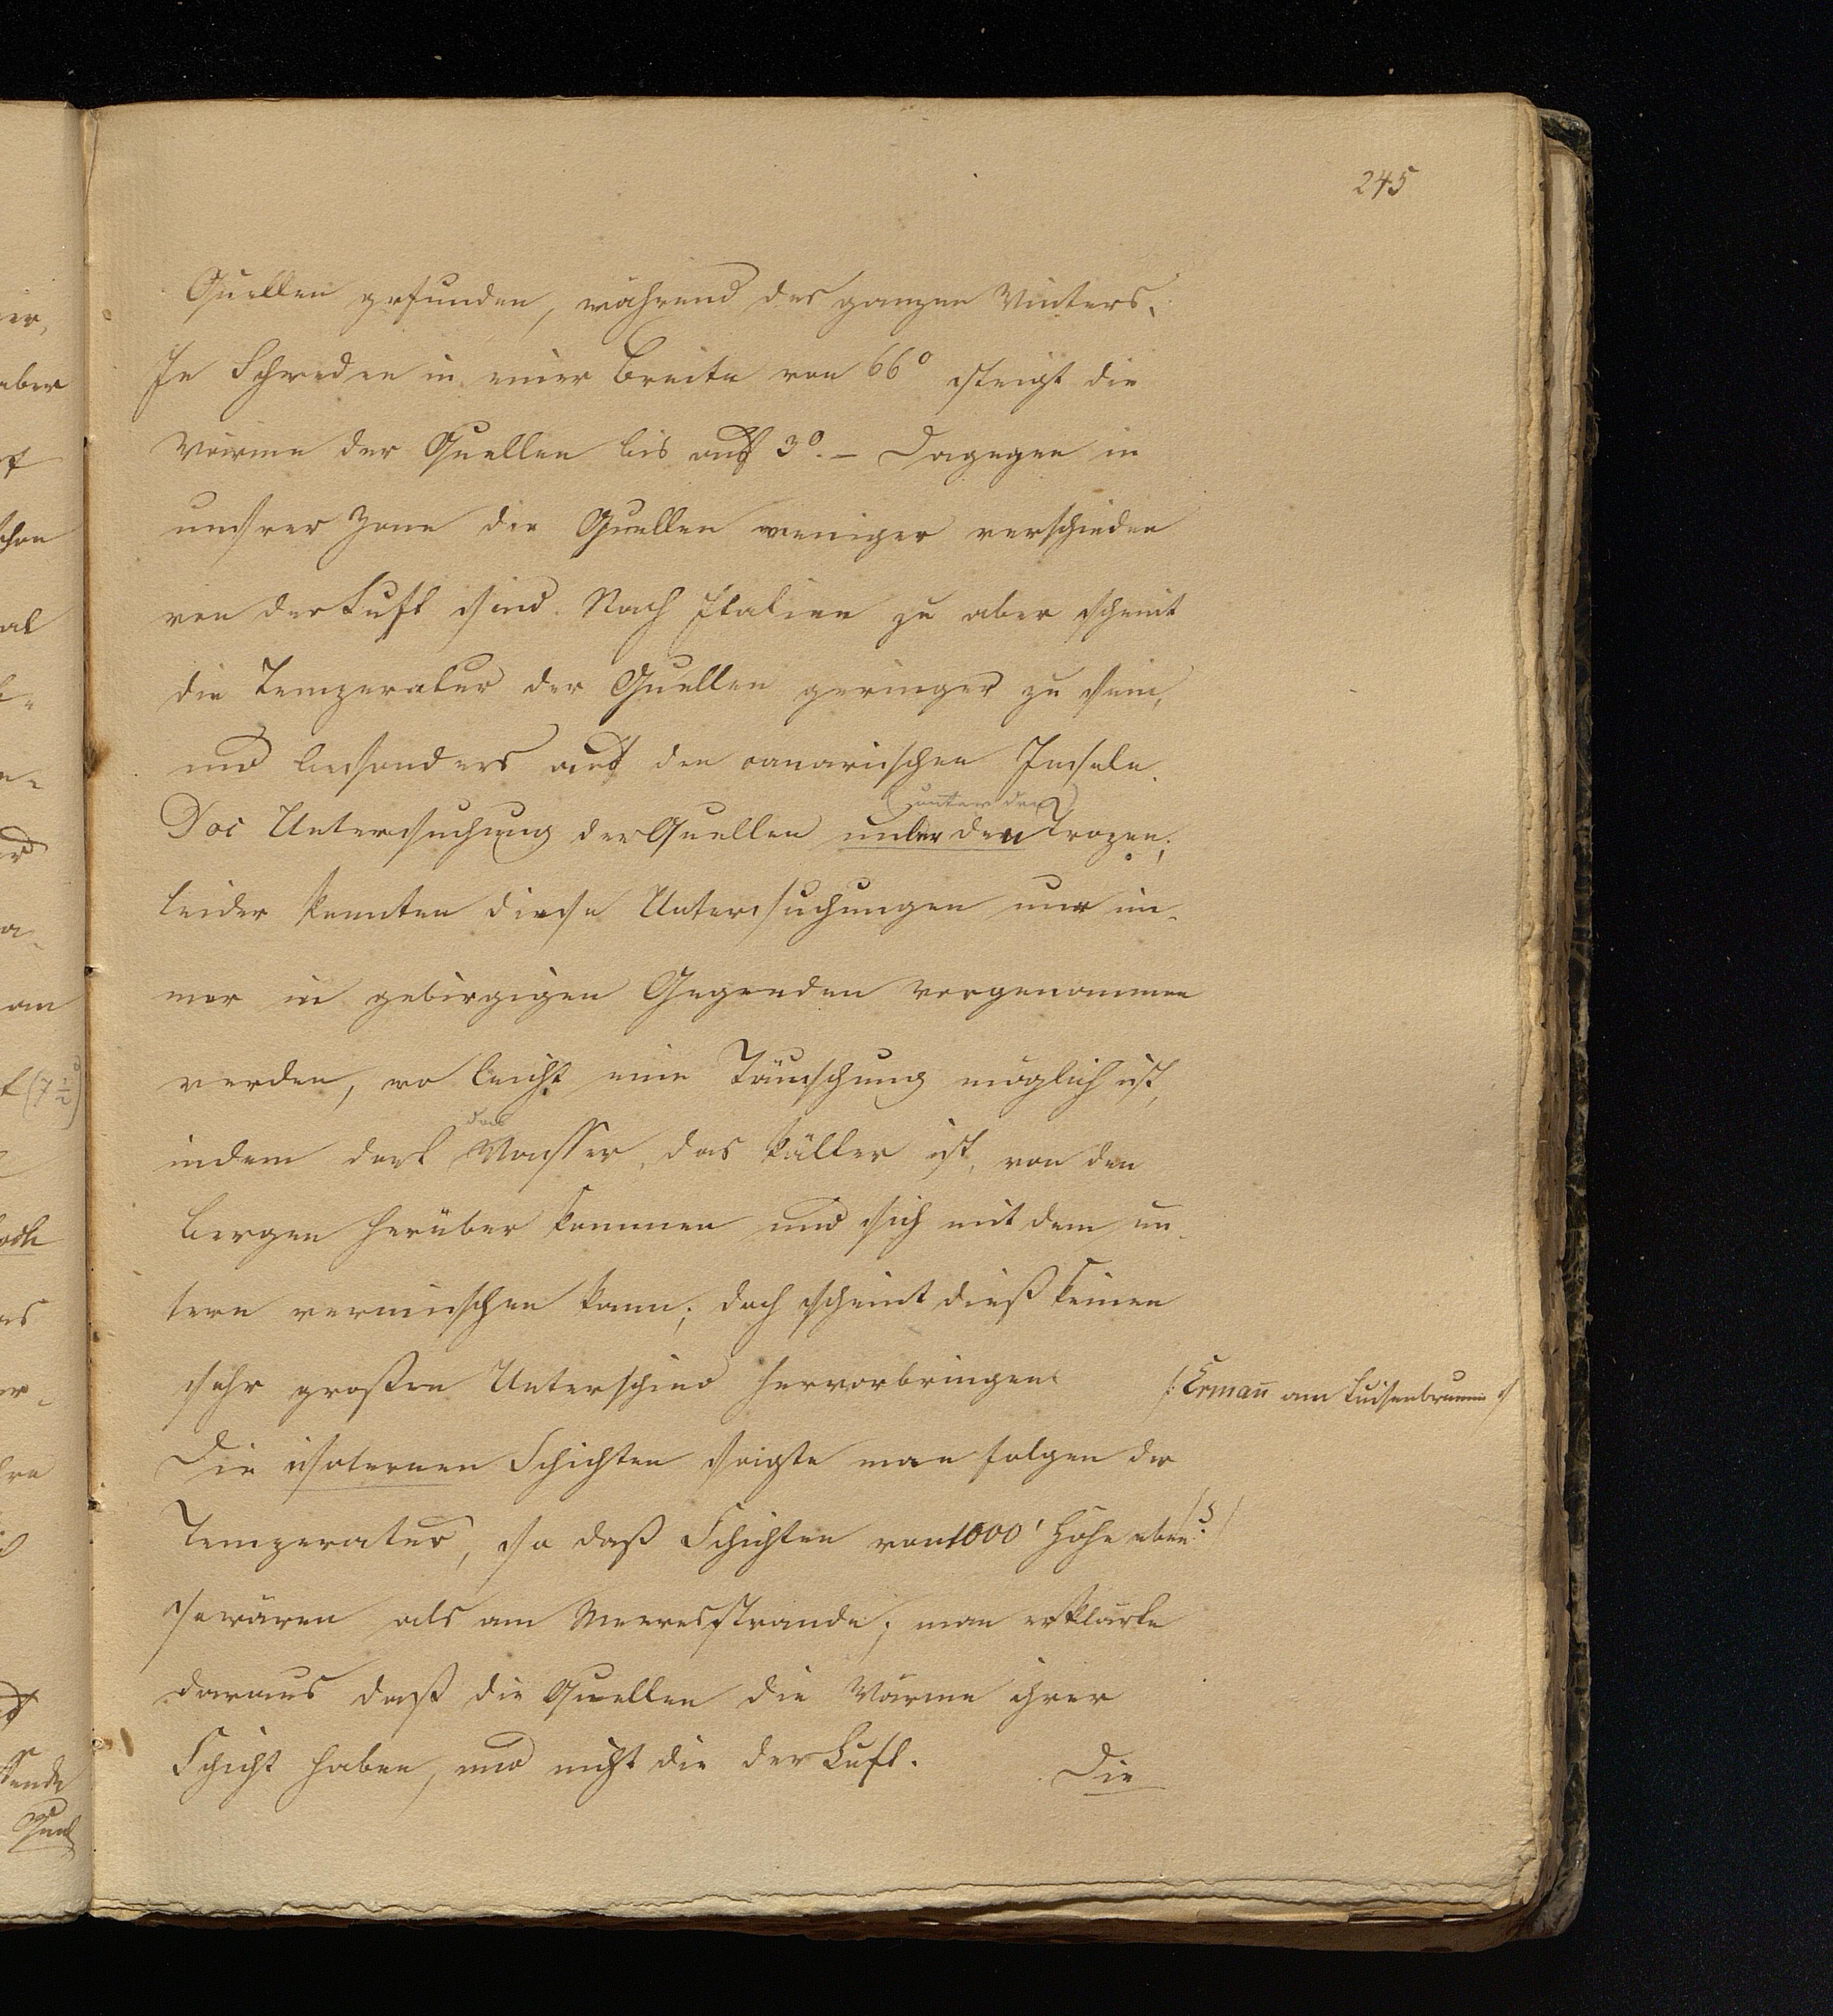 245
Quellen gefunden, während des ganzen Winters.
In Schweden in einer Breite von 66° steigt die
Wärme der Quellen bis auf 3°. – Dagegen in
unsrer Zone die Quellen weniger verschieden
von der Luft sind. Nach Italien zu aber scheint
die Temperatur der Quellen geringer zu sein,
und besonders auf den canarischen Inseln.
(unter den)
Doc Untersuchung der Quellen unter den Tropen;
leider konnten diese Untersuchungen nur im-
mer in gebirgigen Gegenden vorgenommen
werden, wo leicht eine Täuschung möglich ist,
das
indem dort Wasser, das kälter ist, von den
Bergen herüber kommen und sich mit dem un-
tern vermischen kann; doch scheint dieß keinen
sehr großen Unterschied hervorbringen
/: Ermañ am Luisenbrunnen /
Die isoternen Schichten steigte man folgen der
Temperatur, so daß Schichten von 1000' Höhe eben
so wären als am Meeresstrande; man erklärte
daraus daß die Quellen die Wärme ihrer
Schicht haben, und nicht die der Luft.
Die